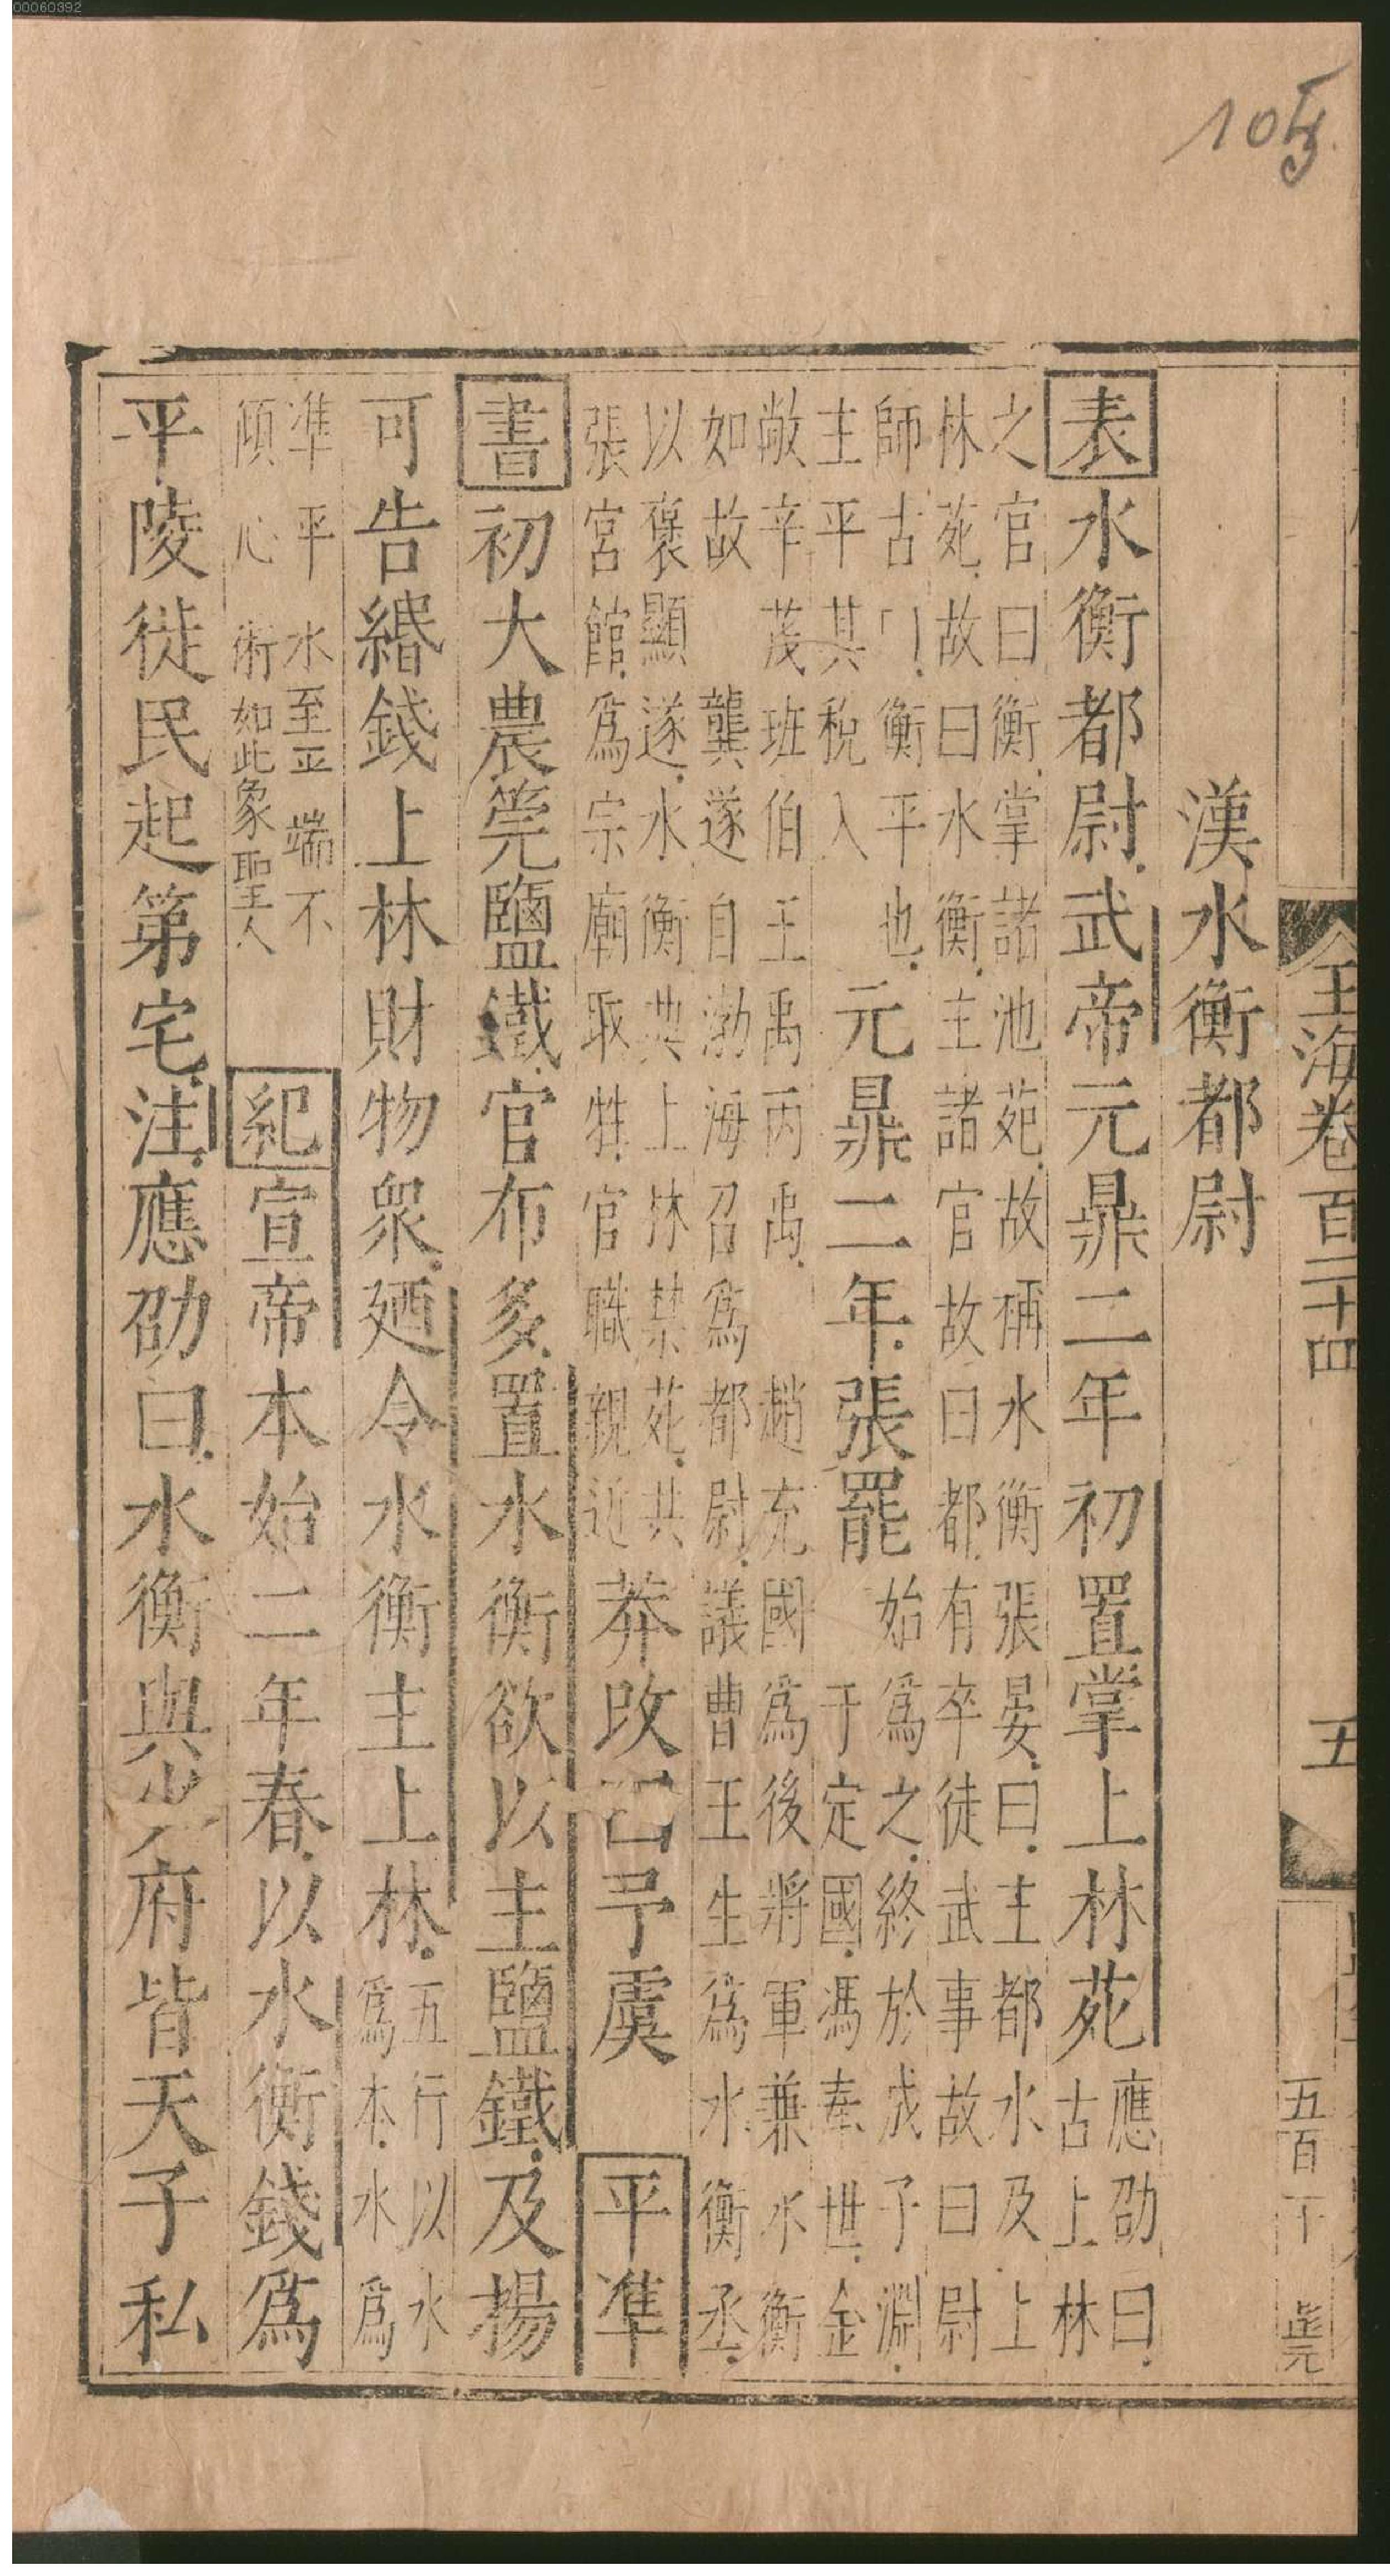 00060392
105
玉海卷百二十四
五
五百下
漢水衡都尉
表水衡都尉武帝元鼎二年初置掌上林苑應劭曰古上林
之官曰衡掌諸池苑故稱水衡張晏曰主都水及上
林苑故曰水衡主諸官故曰都有卒徒武事故曰尉
師古曰衡平也主平其稅入元鼎二年張罷始爲之終於成子淵于定國馮奉世金
敞辛茂班伯王禹丙禹趙充國爲後將軍兼水衡
如故龔遂自渤海召爲都尉議曹王生爲水衡丞
以褒顯遂水衡共上林禁苑共
張宮館爲宗廟取牲官職親近莽改曰予虞平凖
書初大農筦鹽鐵官布多置水衡欲以主鹽鐵及揚
可告緡錢上林財物衆廼令水衡主上林五行以水爲本水爲
凖平水至平端不傾心術如此象聖人紀宣帝本始二年春以水衡錢爲
平陵徙民起第宅注應劭曰水衡與少府皆天子私